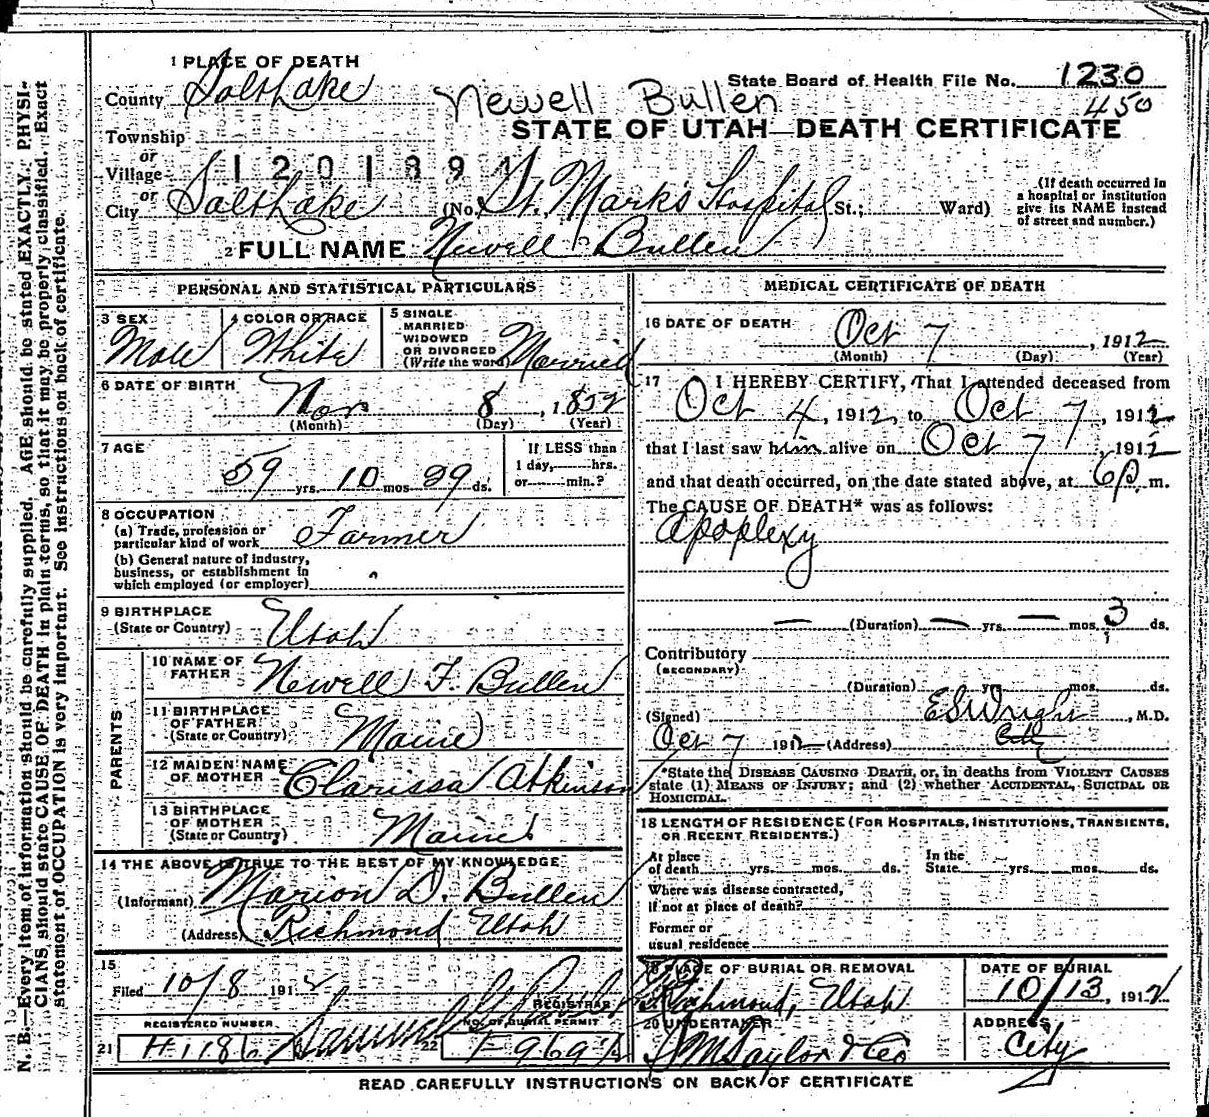 1 PLACE OF DEATH
County Salt Lake
Newell Bullen
State Board of Health File No. 1230
450
Township
STATE OF UTAH—DEATH CERTIFICATE
or
Village
1201894
or
City Salt Lake (No. St. Mark's Hospital St.; Ward)
(If death occurred in a hospital or institution give its NAME instead of street and number.)
2 FULL NAME Newell Bullen
PERSONAL AND STATISTICAL PARTICULARS
3 SEX
Male
4 COLOR OR RACE
White
5 SINGLE
MARRIED
WIDOWED
OR DIVORCED
(Write the word) Married
6 DATE OF BIRTH
Nov 8, 1852
(Month) (Day) (Year)
7 AGE
59 yrs. 10 mos 29 ds.
If LESS than
1 day, hrs.
or min.?
8 OCCUPATION
(a) Trade, profession or
particular kind of work Farmer
(b) General nature of industry,
business, or establishment in
which employed (or employer)
9 BIRTHPLACE
(State or Country) Utah
PARENTS
10 NAME OF
FATHER Newell F. Bullen
11 BIRTHPLACE
OF FATHER
(State or Country) Maine
12 MAIDEN NAME
OF MOTHER Clarissa Atkinson
13 BIRTHPLACE
OF MOTHER
(State or Country) Maine
14 THE ABOVE IS TRUE TO THE BEST OF MY KNOWLEDGE
(Informant) Marion D. Bullen
(Address) Richmond Utah
15
Filed 10/8 1912
REGISTRAR
REGISTERED NUMBER
21 H1186
NO. OF BURIAL PERMIT
22
MEDICAL CERTIFICATE OF DEATH
16 DATE OF DEATH
Oct 7, 1912
(Month) (Day) (Year)
17 I HEREBY CERTIFY, That I attended deceased from
Oct 4, 1912, to Oct 7, 1912
that I last saw him alive on Oct 7, 1912
and that death occurred, on the date stated above, at 6p. m.
The CAUSE OF DEATH* was as follows:
Apoplexy
(Duration) yrs. mos. 3 ds.
Contributory
(SECONDARY)
(Duration) yrs. mos. ds.
(Signed) E S Wright, M.D.
Oct 7 1912 (Address) City
*State the DISEASE CAUSING DEATH, or, in deaths from VIOLENT CAUSES
state (1) MEANS OF INJURY; and (2) whether ACCIDENTAL, SUICIDAL OR
HOMICIDAL.
18 LENGTH OF RESIDENCE (FOR HOSPITALS, INSTITUTIONS, TRANSIENTS,
OR RECENT RESIDENTS.)
At place
of death yrs. mos. ds. In the
State yrs. mos. ds.
Where was disease contracted,
if not at place of death?
Former or
usual residence
19 PLACE OF BURIAL OR REMOVAL
Richmond, Utah
DATE OF BURIAL
10/13, 1912
20 UNDERTAKER
S M Taylor & Co
ADDRESS
City
READ CAREFULLY INSTRUCTIONS ON BACK OF CERTIFICATE
N. B.—Every item of information should be carefully supplied. AGE should be stated EXACTLY. PHYSI-
CIANS should state CAUSE OF DEATH in plain terms, so that it may be properly classified. Exact
statement of OCCUPATION is very important. See instructions on back of certificate.